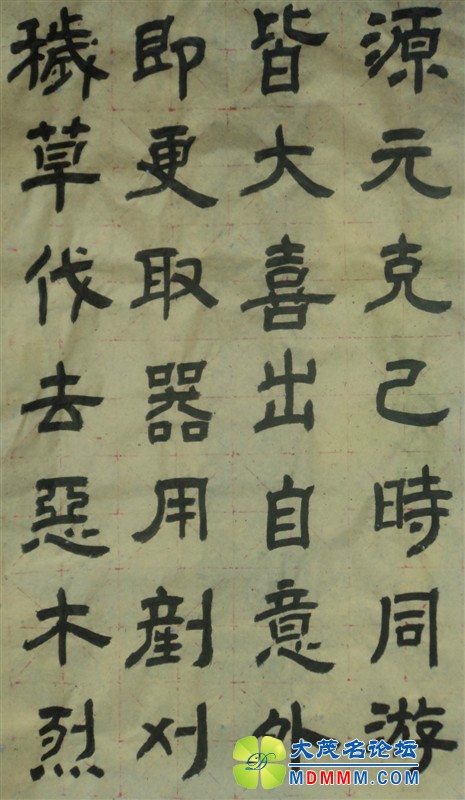 源元克己時同游
皆大喜出自意外
即更取器用剷刈
穢草伐去惡木烈
大茂名论坛
MDMMM.COM